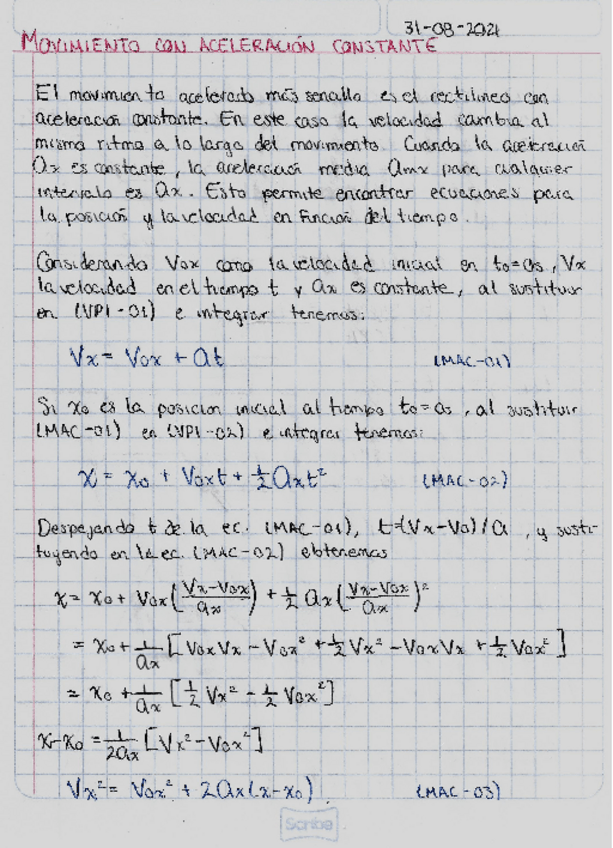 31-08-2021
MOVIMIENTO CON ACELERACIÓN CONSTANTE
El movimiento acelerado más sencillo es el rectilíneo con
aceleración constante. En este caso la velocidad cambia al
mismo ritmo a lo largo del movimiento. Cuando la aceleración
ax es constante, la aceleración media amx para cualquier
intervalo es ax. Esto permite encontrar ecuaciones para
la posición y la velocidad en función del tiempo.
Considerando Vox como la velocidad inicial en to=0s, Vx
la velocidad en el tiempo t y ax es constante, al sustituir
en (VPI-01) e integrar tenemos:
Vx = Vox + at (MAC-01)
Si xo es la posicion inicial al tiempo to=0s, al sustituir
(MAC-01) en (VPI-02) e integrar tenemos:
x = xo + Voxt + ½axt² (MAC-02)
Despejando t de la ec. (MAC-01), t=(Vx-Vo)/a, y susti-
tuyendo en la ec. (MAC-02) obtenemos
x = xo + Vox((Vx-Vox)/ax) + ½ ax((Vx-Vox)/ax)²
= xo + 1/ax [VoxVx - Vox² + ½Vx² - VoxVx + ½Vox²]
= xo + 1/ax [½Vx² - ½Vox²]
x-xo = 1/2ax [Vx² - Vox²]
Vx² = Vox² + 2ax(x-xo) (MAC-03)
Scribe